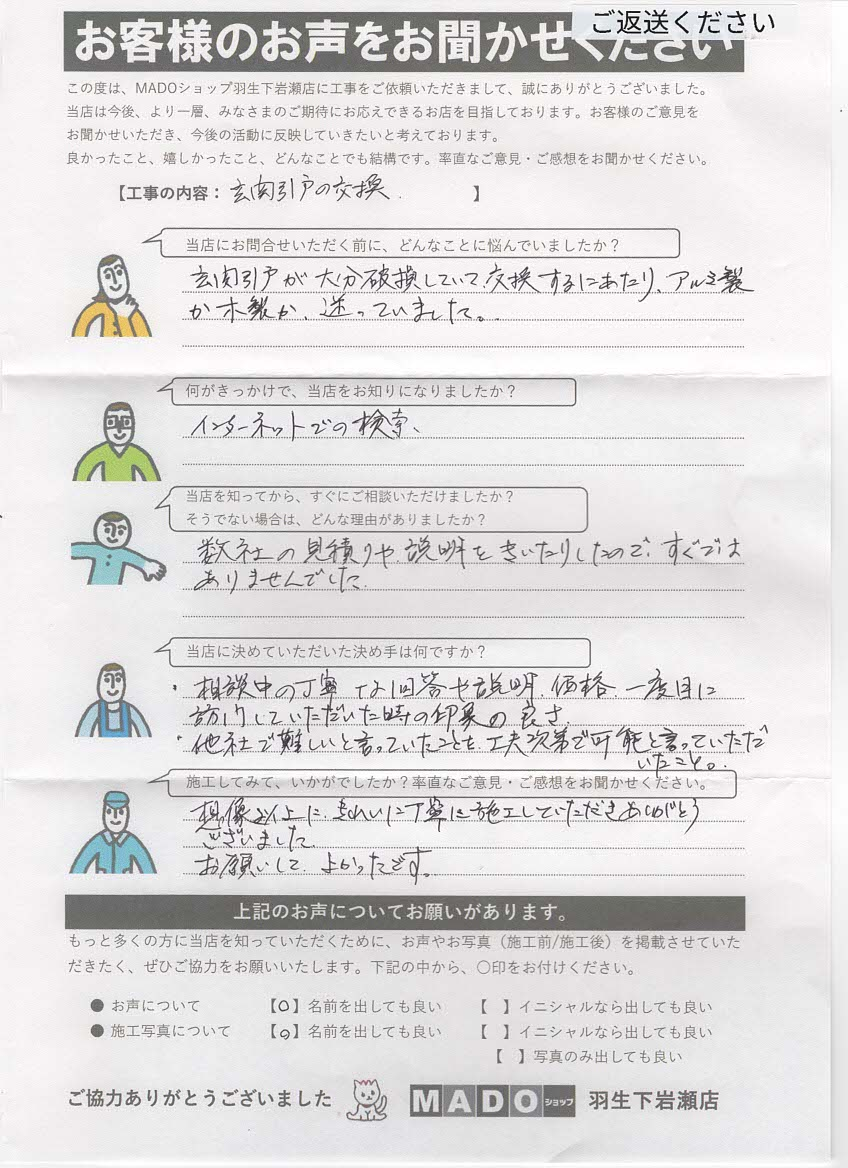 ご返送ください
お客様のお声をお聞かせください
この度は、MADOショップ羽生下岩瀬店に工事をご依頼いただきまして、誠にありがとうございました。
当店は今後、より一層、みなさまのご期待にお応えできるお店を目指しております。お客様のご意見を
お聞かせいただき、今後の活動に反映していきたいと考えております。
良かったこと、嬉しかったこと、どんなことでも結構です。率直なご意見・ご感想をお聞かせください。
【工事の内容：玄関引戸の交換. 】
当店にお問合せいただく前に、どんなことに悩んでいましたか？
玄関引戸が大分破損していて、交換するにあたり、アルミ製
か木製か、迷っていました。
何がきっかけで、当店をお知りになりましたか？
インターネットでの検索、
当店を知ってから、すぐにご相談いただけましたか？
そうでない場合は、どんな理由がありましたか？
数社の見積りや、説明をきいたりしたので、すぐでは
ありませんでした.
当店に決めていただいた決め手は何ですか？
・相談中の丁寧な回答や説明、価格、一度目に
訪問していただいた時の印象の良さ.
・他社で難しいと言っていたことを、工夫次第で可能と言っていただ
いたこと。
施工してみて、いかがでしたか？率直なご意見・ご感想をお聞かせください。
想像以上に、きれいに丁寧に施工していただきありがとう
ございました
お願いして、よかったです。
上記のお声についてお願いがあります。
もっと多くの方に当店を知っていただくために、お声やお写真（施工前/施工後）を掲載させていた
だきたく、ぜひご協力をお願いいたします。下記の中から、〇印をお付けください。
● お声について 【○】名前を出しても良い 【 】イニシャルなら出しても良い
● 施工写真について 【○】名前を出しても良い 【 】イニシャルなら出しても良い
【 】写真のみ出しても良い
ご協力ありがとうございました MADOショップ 羽生下岩瀬店